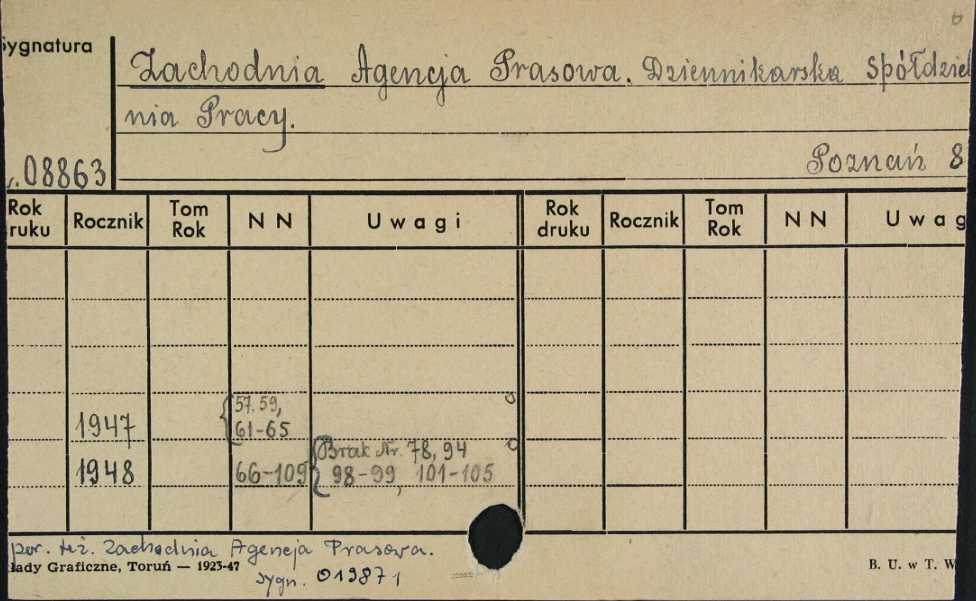 Sygnatura
Zachodnia Agencja Prasowa. Dziennikarska Spółdziel
nia Pracy.
08863
Poznań 8
Rok druku Rocznik Tom Rok NN Uwagi Rok druku Rocznik Tom Rok NN Uwag
57. 59,
1947 61-65
Brak Nr. 78, 94
1948 66-109 98-99, 101-105
por. też. Zachodnia Agencja Prasowa.
łady Graficzne, Toruń — 1923-47 B. U. w T. W
sygn. 019871